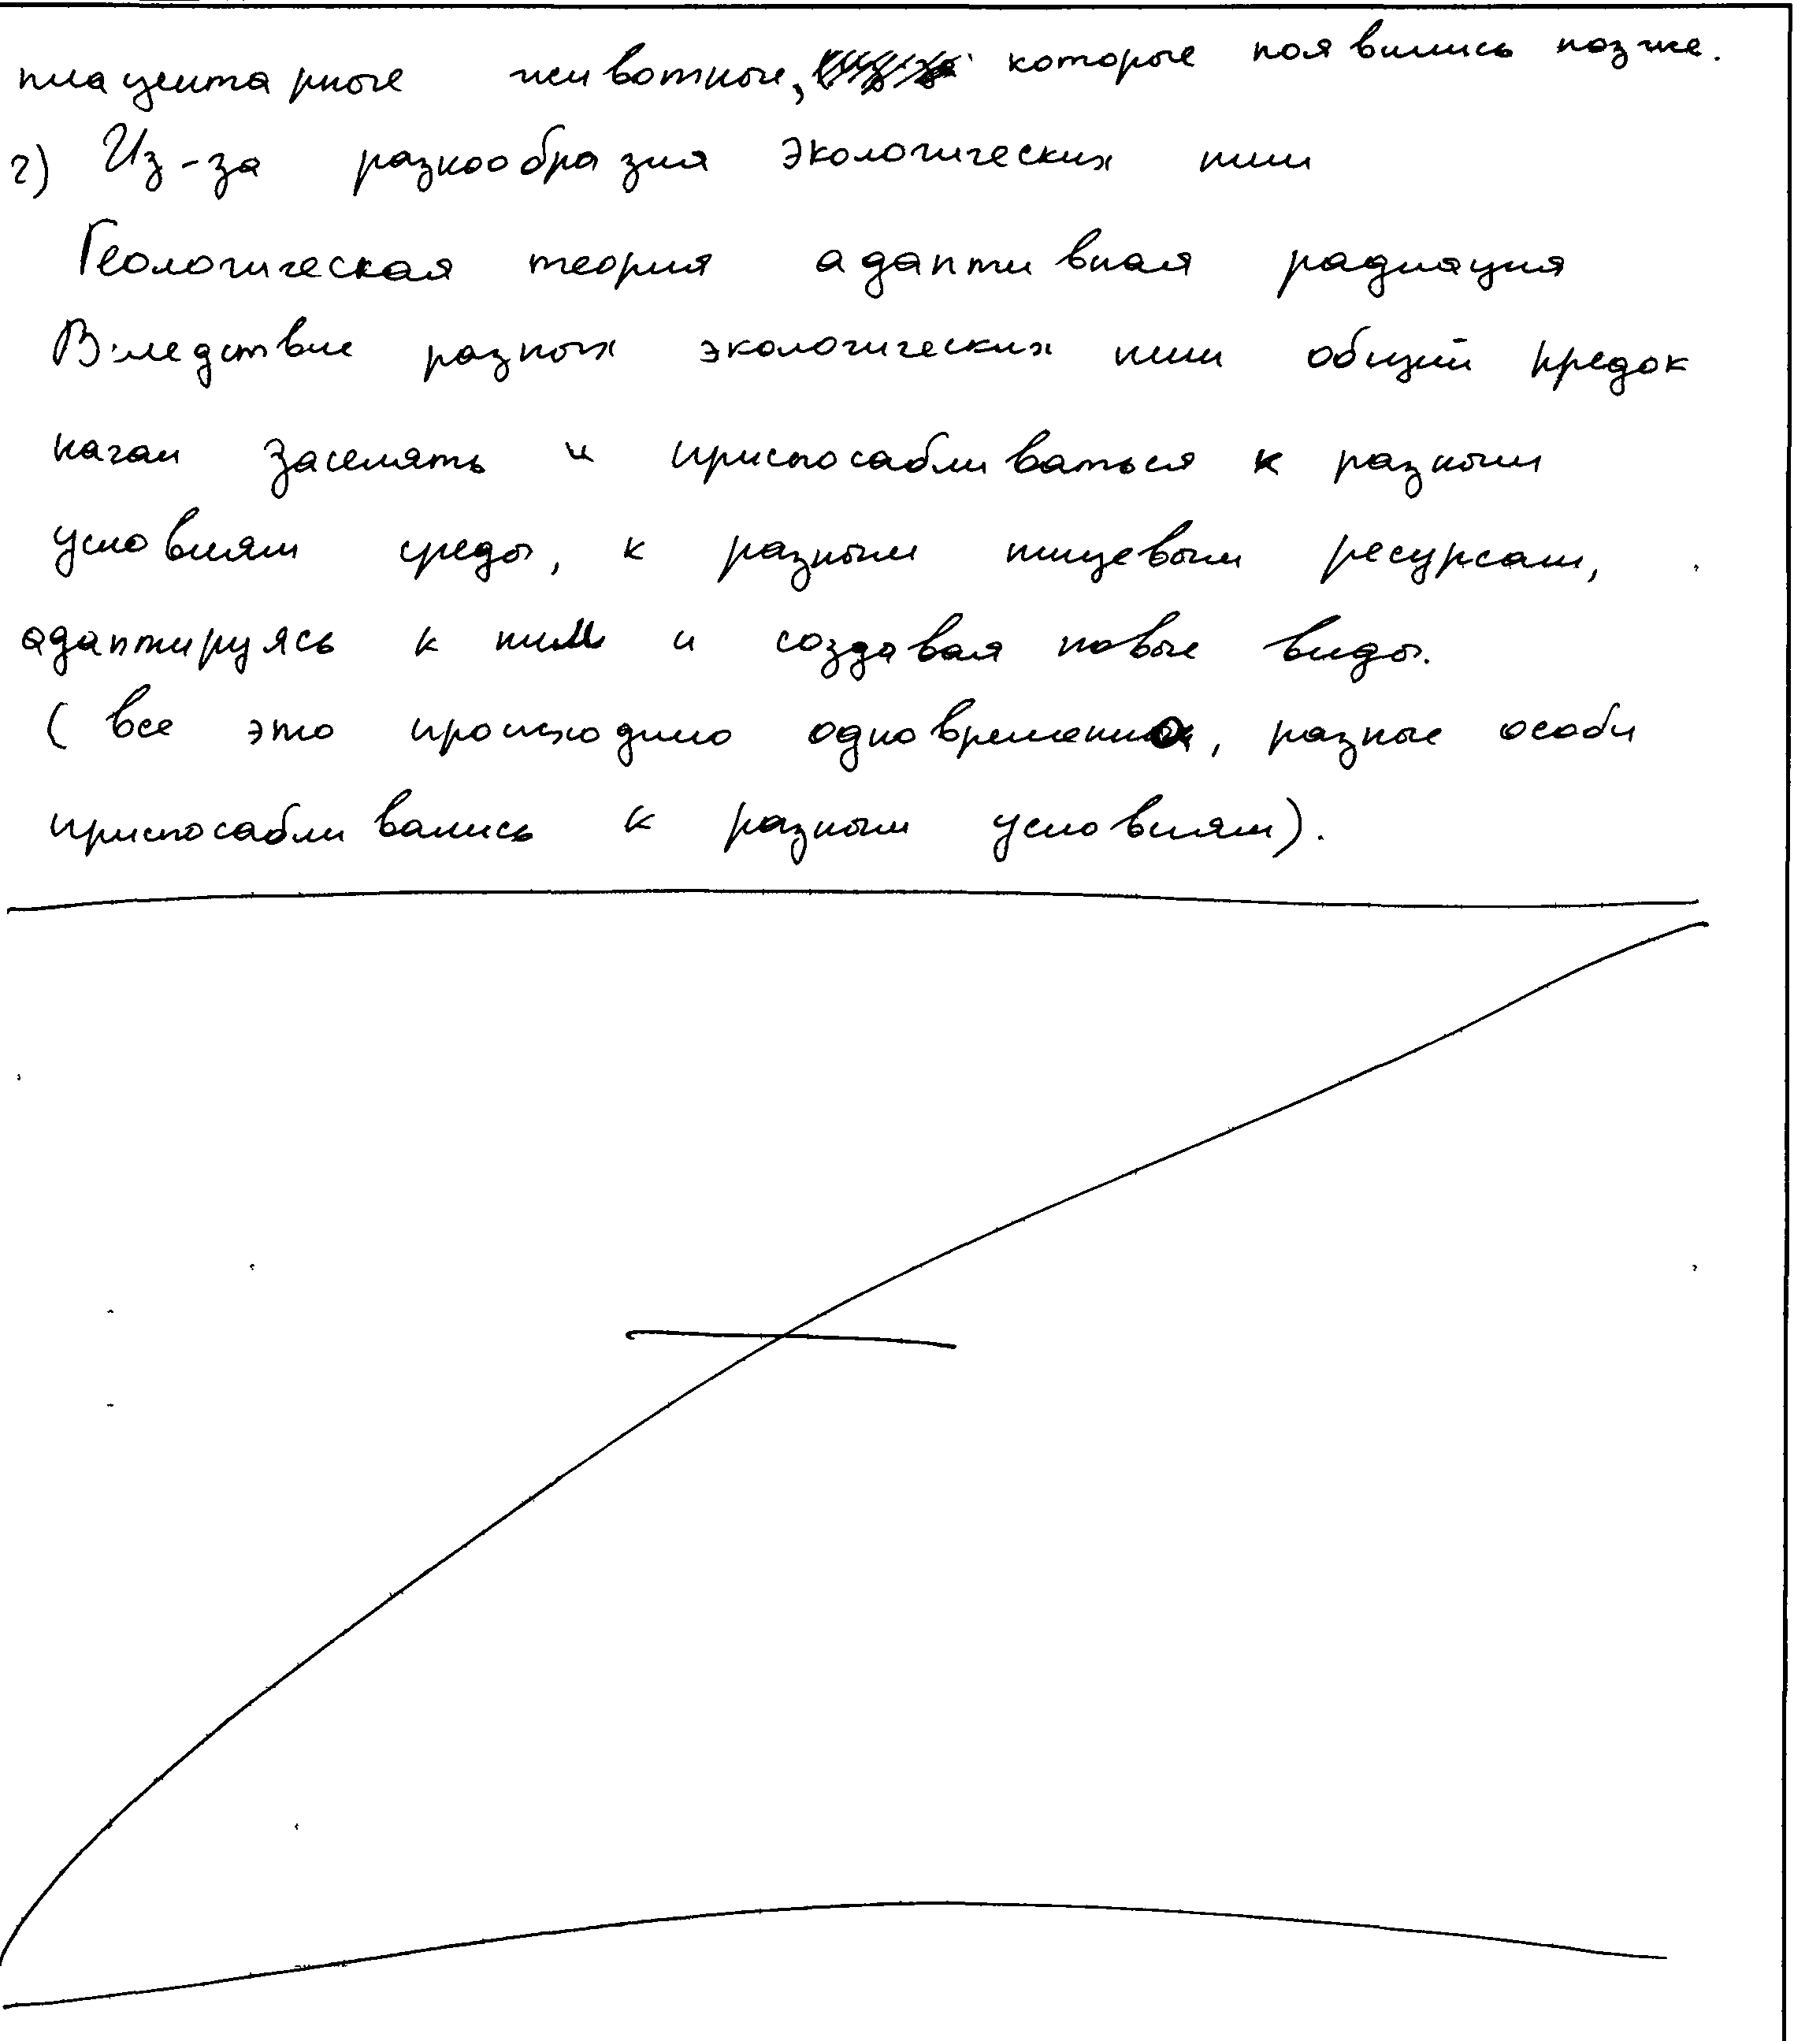 плацентарные животные, которые появились позже.
г) Из-за разнообразия экологических ниш
Геологическая теория адаптивная радиация
Вследствие разных экологических ниш общий предок
начал заселять и приспосабливаться к разным
условиям среды, к разным пищевым ресурсам,
адаптируясь к ним и создавая новые виды.
(все это происходило одновременно, разные особи
приспосабливались к разным условиям).